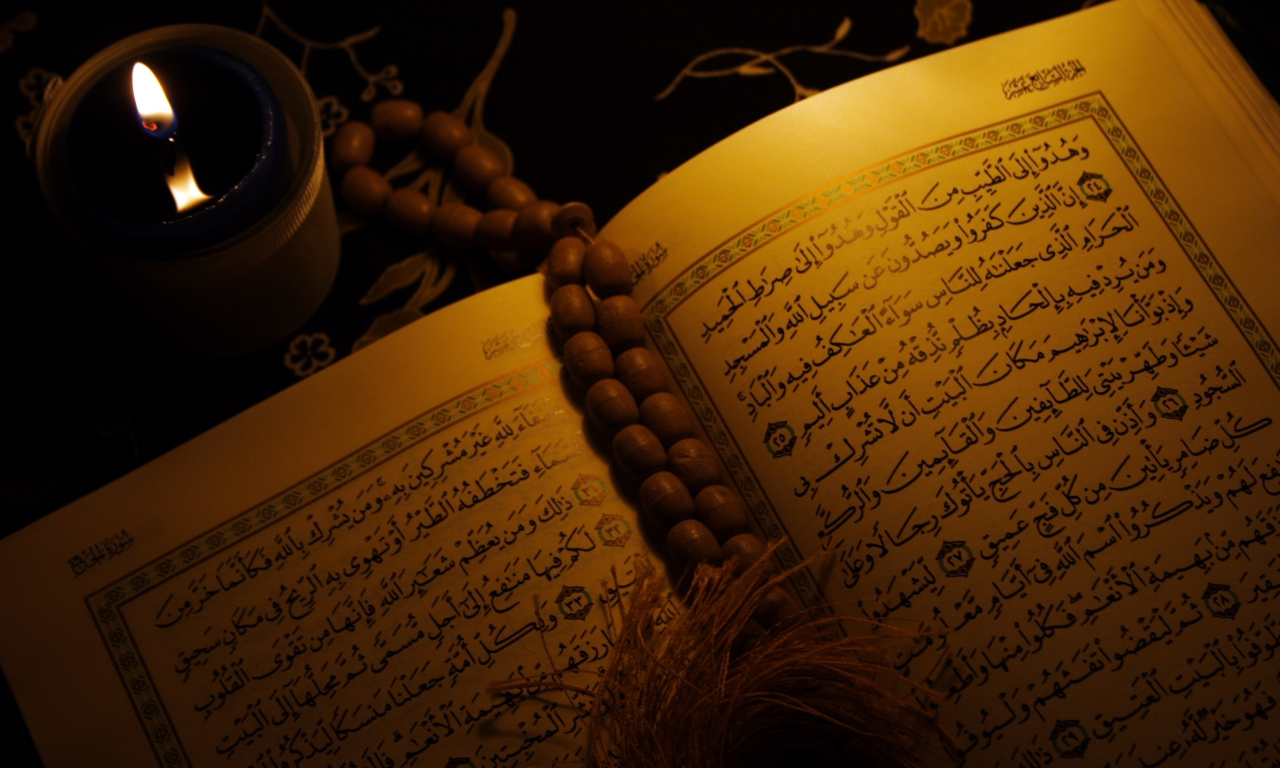 الجزء السابع عشر
وَهُدُوٓا۟ إِلَى ٱلطَّيِّبِ مِنَ ٱلْقَوْلِ وَهُدُوٓا۟ إِلَىٰ صِرَٰطِ ٱلْحَمِيدِ
٢٤ إِنَّ ٱلَّذِينَ كَفَرُوا۟ وَيَصُدُّونَ عَن سَبِيلِ ٱللَّهِ وَٱلْمَسْجِدِ
ٱلْحَرَامِ ٱلَّذِى جَعَلْنَٰهُ لِلنَّاسِ سَوَآءً ٱلْعَٰكِفُ فِيهِ وَٱلْبَادِ ۚ
وَمَن يُرِدْ فِيهِ بِإِلْحَادٍۭ بِظُلْمٍ نُّذِقْهُ مِنْ عَذَابٍ أَلِيمٍ ٢٥
وَإِذْ بَوَّأْنَا لِإِبْرَٰهِيمَ مَكَانَ ٱلْبَيْتِ أَن لَّا تُشْرِكْ بِى
شَيْـًٔا وَطَهِّرْ بَيْتِىَ لِلطَّآئِفِينَ وَٱلْقَآئِمِينَ وَٱلرُّكَّعِ
ٱلسُّجُودِ ٢٦ وَأَذِّن فِى ٱلنَّاسِ بِٱلْحَجِّ يَأْتُوكَ رِجَالًا وَعَلَىٰ
كُلِّ ضَامِرٍ يَأْتِينَ مِن كُلِّ فَجٍّ عَمِيقٍ ٢٧ لِّيَشْهَدُوا۟
لَهُمْ وَيَذْكُرُوا۟ ٱسْمَ ٱللَّهِ فِىٓ أَيَّامٍ
مِّنۢ بَهِيمَةِ ٱلْأَنْعَٰمِ ۖ فَكُلُوا۟ مِنْهَا
٢٨ ثُمَّ لْيَقْضُوا۟ تَفَثَهُمْ
بِٱلْبَيْتِ ٱلْعَتِيقِ ٢٩ ذَٰلِكَ
فَهُوَ خَيْرٌ لَّهُۥ عِندَ
سورة الحج
لِلَّهِ غَيْرَ مُشْرِكِينَ بِهِۦ ۚ وَمَن يُشْرِكْ بِٱللَّهِ فَكَأَنَّمَا خَرَّ مِنَ
ٱلسَّمَآءِ فَتَخْطَفُهُ ٱلطَّيْرُ أَوْ تَهْوِى بِهِ ٱلرِّيحُ فِى مَكَانٍ سَحِيقٍ
٣١ ذَٰلِكَ وَمَن يُعَظِّمْ شَعَٰٓئِرَ ٱللَّهِ فَإِنَّهَا مِن تَقْوَى ٱلْقُلُوبِ
٣٢ لَكُمْ فِيهَا مَنَٰفِعُ إِلَىٰٓ أَجَلٍ مُّسَمًّى ثُمَّ مَحِلُّهَآ إِلَى ٱلْبَيْتِ
٣٣ وَلِكُلِّ أُمَّةٍ جَعَلْنَا مَنسَكًا لِّيَذْكُرُوا۟
رَزَقَهُم بَهِيمَةِ ٱلْأَنْعَٰمِ ۗ
ٱلْمُخْبِتِينَ